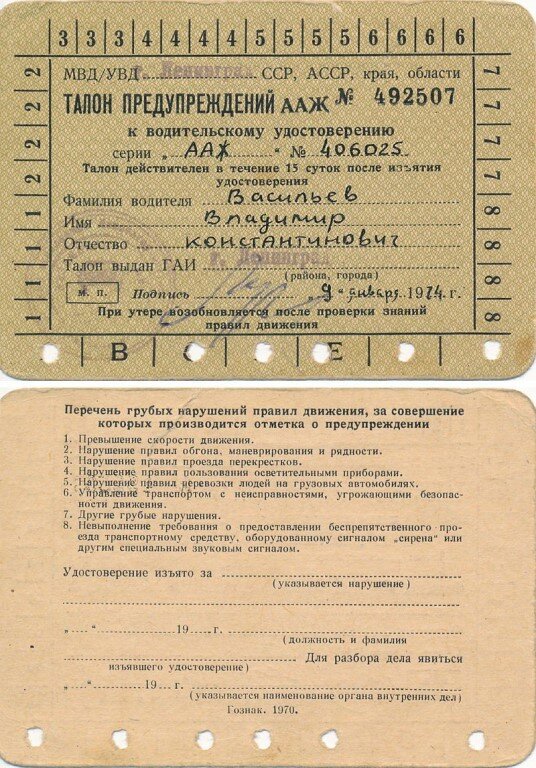 3 3 3 3 4 4 4 4 5 5 5 5 5 6 6 6 6
2 2 2 1 1 1 1
7 7 7 7 8 8 8 8
МВД/УВД г. Ленинград ССР, АССР, края, области
ТАЛОН ПРЕДУПРЕЖДЕНИЙ ААЖ № 492507
к водительскому удостоверению
серии „ ААЖ “ № 406025
Талон действителен в течение 15 суток после изъятия
удостоверения
Фамилия водителя Васильев
Имя Владимир
Отчество Константинович
Талон выдан ГАИ г. Ленинград
(района, города)
м. п. Подпись „9“ января 1974 г.
При утере возобновляется после проверки знаний
правил движения
В О Е
Перечень грубых нарушений правил движения, за совершение
которых производится отметка о предупреждении
1. Превышение скорости движения.
2. Нарушение правил обгона, маневрирования и рядности.
3. Нарушение правил проезда перекрестков.
4. Нарушение правил пользования осветительными приборами.
5. Нарушение правил перевозки людей на грузовых автомобилях.
6. Управление транспортом с неисправностями, угрожающими безопас-
ности движения.
7. Другие грубые нарушения.
8. Невыполнение требования о предоставлении беспрепятственного про-
езда транспортному средству, оборудованному сигналом „сирена“ или
другим специальным звуковым сигналом.
Удостоверение изъято за
(указывается нарушение)
„ “ 19 г.
(должность и фамилия
Для разбора дела явиться
изъявшего удостоверение)
„ “ 19 г.
(указывается наименование органа внутренних дел)
Гознак. 1970.